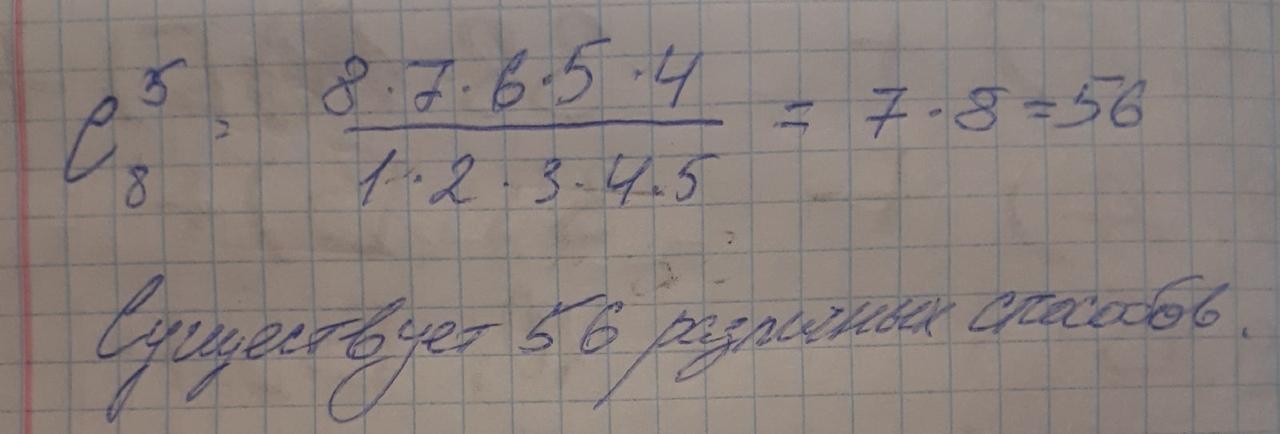 C₈⁵ = 8·7·6·5·4 / 1·2·3·4·5 = 7·8=56
Существует 56 различных способов.